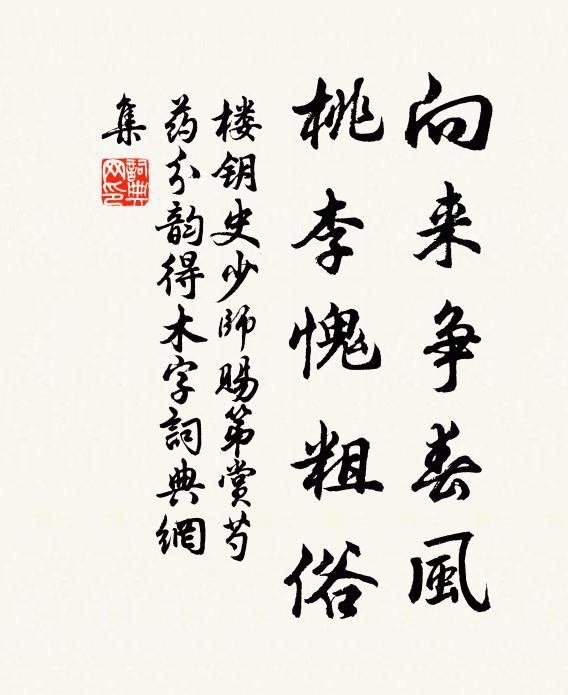 向来争春風
桃李愧粗俗
楼钥史少師賜第賞芍
药分韵得木字詞典網
集
詞典
网印